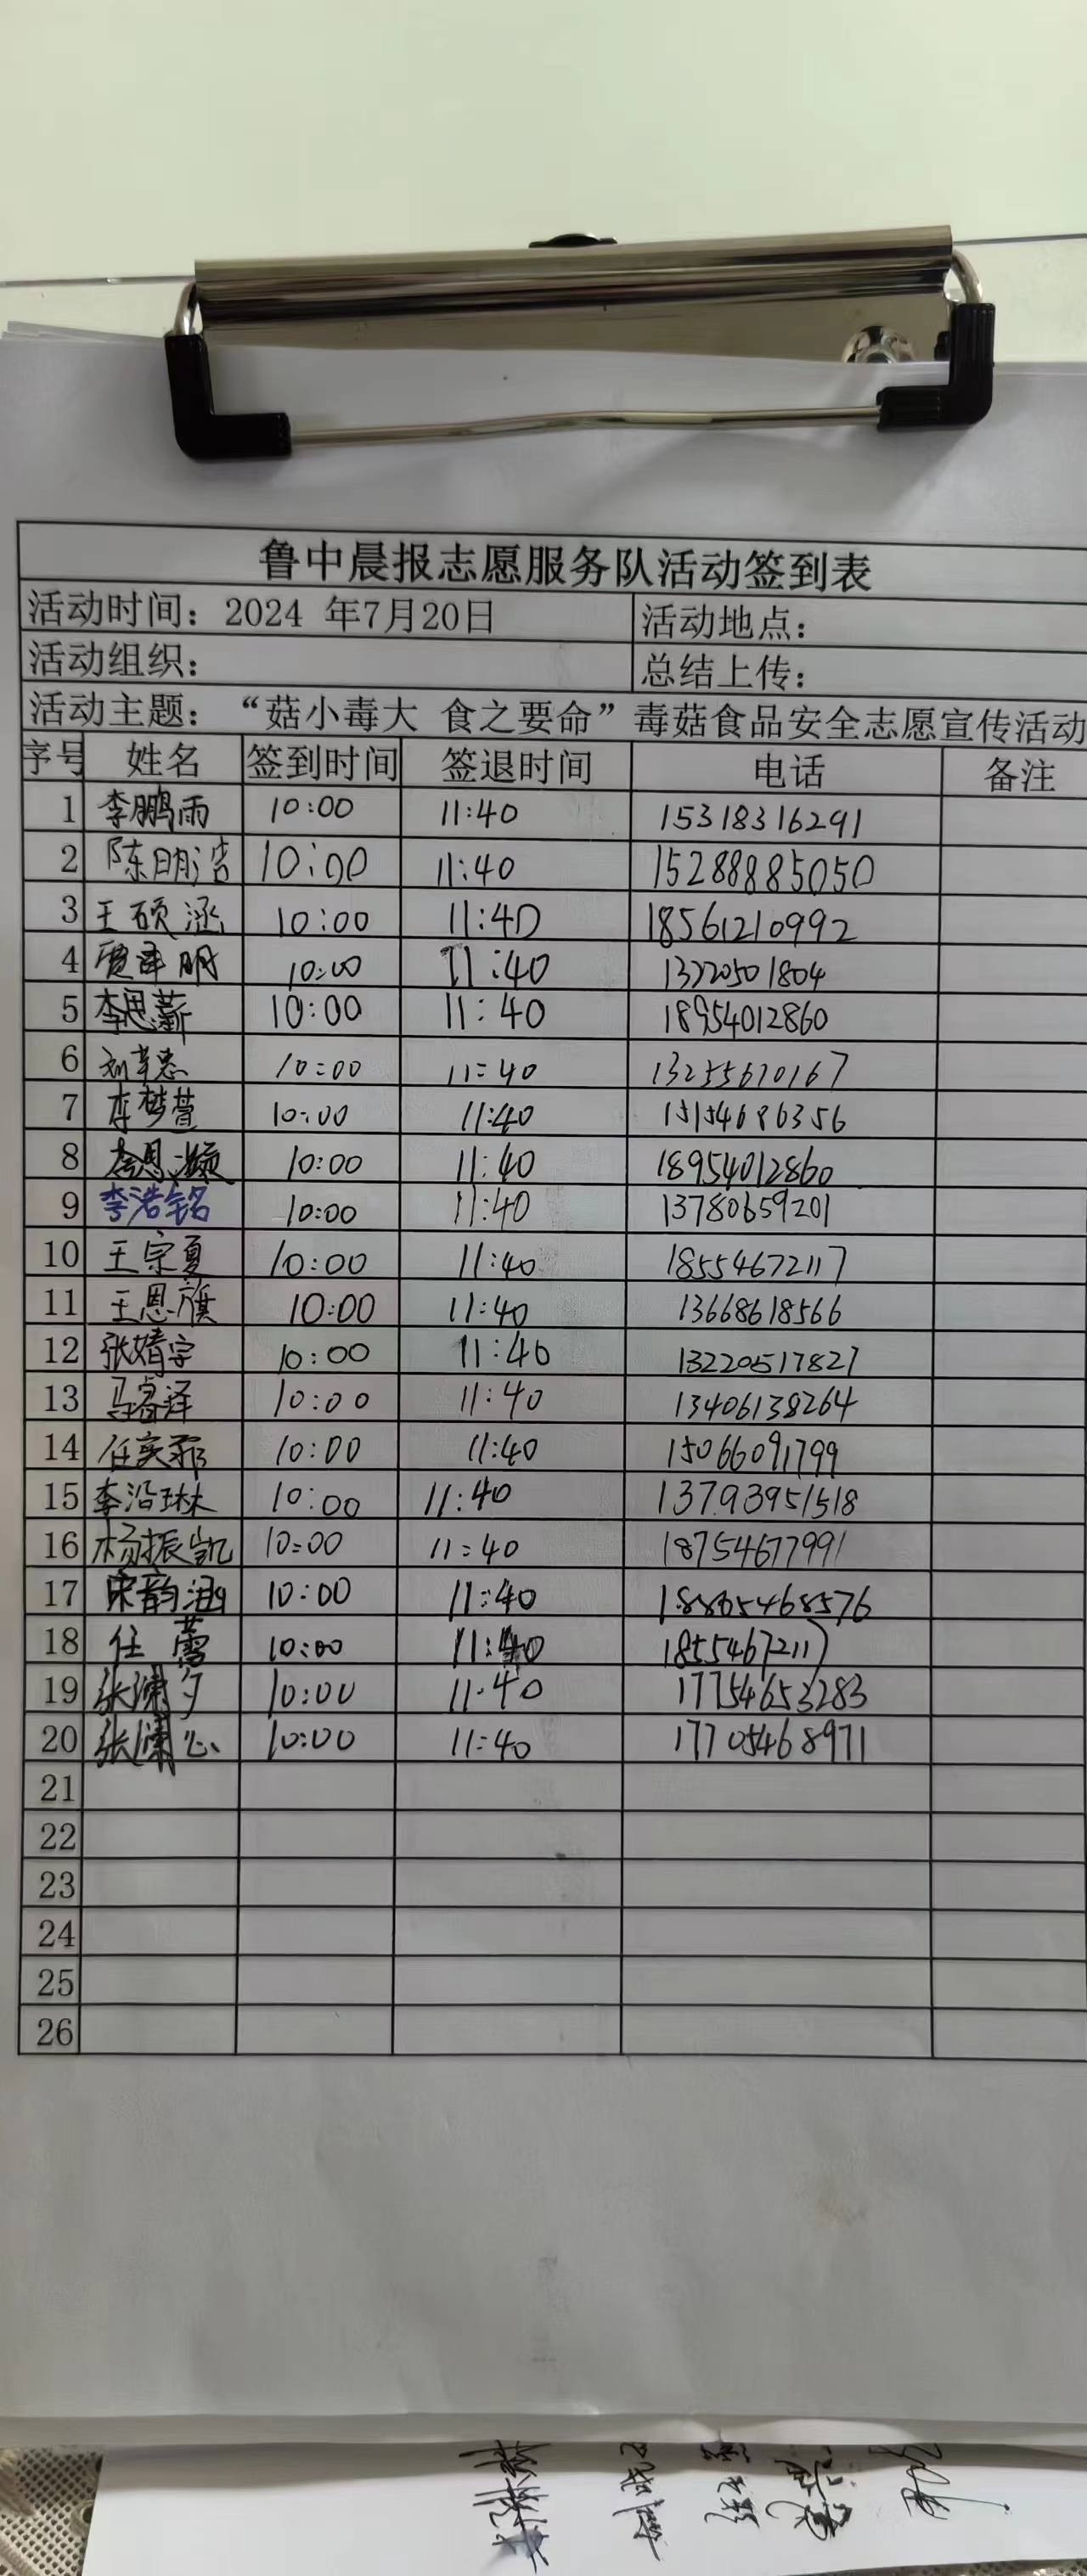 鲁中晨报志愿服务队活动签到表
活动时间：2024 年7月20日 活动地点：
活动组织： 总结上传：
活动主题：“菇小毒大 食之要命”毒菇食品安全志愿宣传活动
序号 姓名 签到时间 签退时间 电话 备注
1 李鹏雨 10:00 11:40 15318316291
2 陈明浩 10:00 11:40 15288885050
3 王硕涵 10:00 11:40 18561210992
4 贾泽明 10:00 11:40 13220501804
5 李思薪 10:00 11:40 18954012860
6 10:00 11:40 13255610167
7 李梦萱 10:00 11:40 15154686356
8 10:00 11:40 18954012860
9 李浩铭 10:00 11:40 13780659201
10 王宗夏 10:00 11:40 18554672117
11 王恩旗 10:00 11:40 13668618566
12 张婧宇 10:00 11:40 13220517827
13 马睿泽 10:00 11:40 13406138264
14 10:00 11:40 15066091799
15 李沿琳 10:00 11:40 13793951518
16 杨振凯 10:00 11:40 18754677991
17 宋韵涵 10:00 11:40 18865468576
18 任蕾 10:00 11:40 18554672117
19 张潇夕 10:00 11:40 17754653283
20 张潇心 10:00 11:40 17705468971
21
22
23
24
25
26